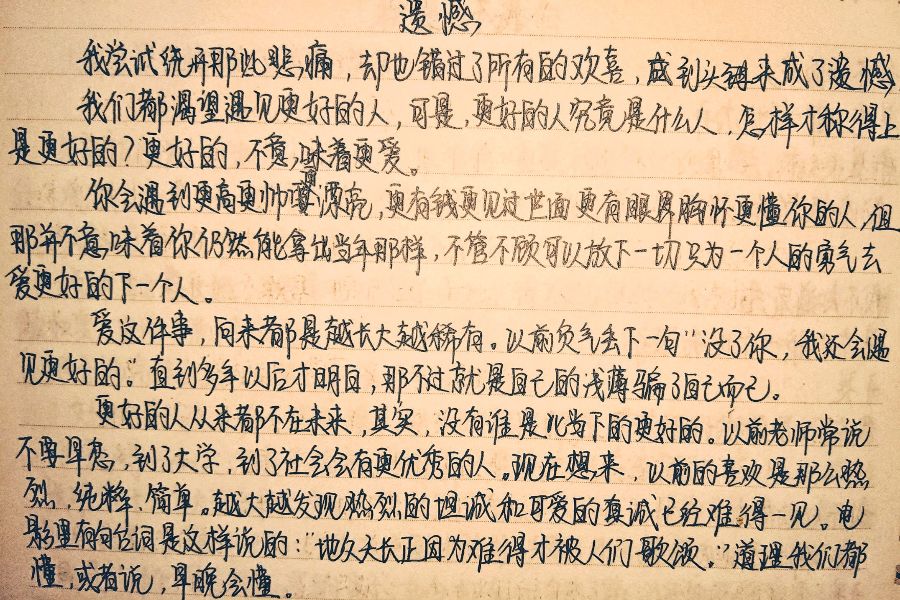 遗憾
我尝试绕开那些悲痛，却也错过了所有的欢喜，感到头疼来成了遗憾
我们都渴望遇见更好的人，可是，更好的人究竟是什么人，怎样才称得上
是更好的？更好的，不意味着更爱。
你会遇到更高更帅更漂亮，更有钱更见过世面更有眼界胸怀更懂你的人，但
那并不意味着你仍然能拿出当年那样，不管不顾可以放下一切只为一个人的勇气去
爱更好的下一个人。
爱这件事，向来都是越长大越稀有。以前负气丢下一句“没了你，我还会遇
见更好的。”直到多年以后才明白，那不过就是自己的浅薄骗了自己而已。
更好的人从来都不在未来，其实，没有谁是比当下的更好的。以前老师常说
不要早恋，到了大学，到了社会会有更优秀的人。现在想来，以前的喜欢是那么热
烈，纯粹，简单。越大越发现热烈的坦诚和可爱的真诚已经难得一见。电
影里有句台词是这样说的：“地久天长正因为难得才被人们歌颂。”道理我们都
懂，或者说，早晚会懂。